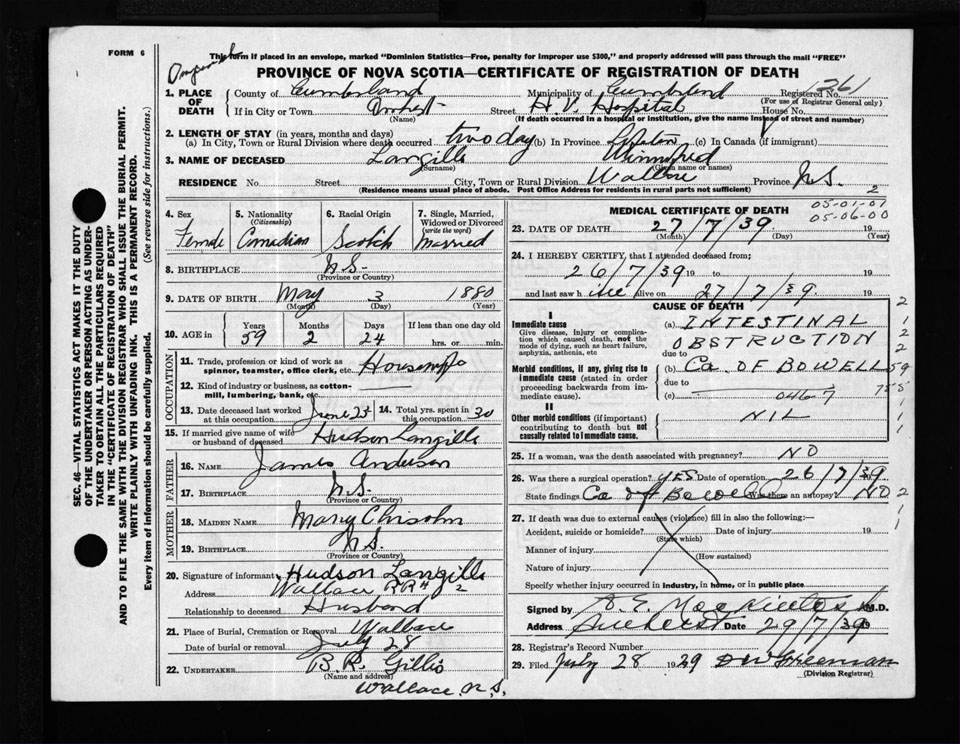 FORM 6
This form if placed in an envelope, marked "Dominion Statistics—Free, penalty for improper use $300," and properly addressed will pass through the mail "FREE"
PROVINCE OF NOVA SCOTIA—CERTIFICATE OF REGISTRATION OF DEATH
1. PLACE OF DEATH County of Cumberland Municipality of Cumberland Registered No. 261
(For use of Registrar General only)
If in City or Town Amherst Street H. V. Hospital House No.
(Name) (If death occurred in a hospital or institution, give the name instead of street and number)
2. LENGTH OF STAY (in years, months and days)
(a) In City, Town or Rural Division where death occurred two days (b) In Province (c) In Canada (if immigrant)
3. NAME OF DECEASED Langille Winnifred
(Surname) (Given name or names)
RESIDENCE No. Street City, Town or Rural Division Wallace Province N.S. 2
(Residence means usual place of abode. Post Office Address for residents in rural parts not sufficient)
SEC. 46—VITAL STATISTICS ACT MAKES IT THE DUTY
OF THE UNDERTAKER OR PERSON ACTING AS UNDER-
TAKER TO OBTAIN ALL THE PARTICULARS REQUIRED
IN THE "CERTIFICATE OF REGISTRATION OF DEATH"
AND TO FILE THE SAME WITH THE DIVISION REGISTRAR WHO SHALL ISSUE THE BURIAL PERMIT.
WRITE PLAINLY WITH UNFADING INK. THIS IS A PERMANENT RECORD.
Every item of information should be carefully supplied. (See reverse side for instructions.)
4. Sex Female
5. Nationality (Citizenship) Canadian
6. Racial Origin Scotch
7. Single, Married, Widowed or Divorced (write the word) Married
8. BIRTHPLACE N.S.
(Province or Country)
9. DATE OF BIRTH May 3 1880
(Month) (Day) (Year)
10. AGE in Years 59 Months 2 Days 24 If less than one day old hrs. or min.
OCCUPATION
11. Trade, profession or kind of work as spinner, teamster, office clerk, etc. Housewife
12. Kind of industry or business, as cotton-mill, lumbering, bank, etc.
13. Date deceased last worked at this occupation June 1st 14. Total yrs. spent in this occupation 30
15. If married give name of wife or husband of deceased Hudson Langille
FATHER
16. NAME James Anderson
17. BIRTHPLACE N.S.
(Province or Country)
MOTHER
18. MAIDEN NAME Mary Chisolm
19. BIRTHPLACE N.S.
(Province or Country)
20. Signature of informant Hudson Langille
Address Wallace RR# 2
Relationship to deceased Husband
21. Place of Burial, Cremation or Removal Wallace
Date of burial or removal July 28
22. UNDERTAKER B. R. Gillis
(Name and address)
Wallace, N.S.
MEDICAL CERTIFICATE OF DEATH 05-01-01
05-06-00
23. DATE OF DEATH 27/7/39 19
(Month) (Day) (Year)
24. I HEREBY CERTIFY, that I attended deceased from;
26/7/39 19 to 19
and last saw h alive on 27/7/39 19
CAUSE OF DEATH
I
Immediate cause
Give disease, injury or complication which caused death, not the mode of dying, such as heart failure, asphyxia, asthenia, etc
(a) INTESTINAL
OBSTRUCTION
due to
Morbid conditions, if any, giving rise to immediate cause (stated in order proceeding backwards from immediate cause).
(b) Ca. OF BOWELL
due to
(c) 0467
II
Other morbid conditions (if important) contributing to death but not causally related to immediate cause.
NIL
25. If a woman, was the death associated with pregnancy? NO
26. Was there a surgical operation? YES Date of operation 26/7/39
State findings Ca of Bowell Was there an autopsy? NO
27. If death was due to external causes (violence) fill in also the following:—
Accident, suicide or homicide? Date of injury 19
(State which)
Manner of injury
(How sustained)
Nature of injury
Specify whether injury occurred in industry, in home, or in public place
Signed by A. E. MacKintosh M.D.
Address Amherst Date 29/7/39
28. Registrar's Record Number
29. Filed July 28 1929 Freeman
(Division Registrar)